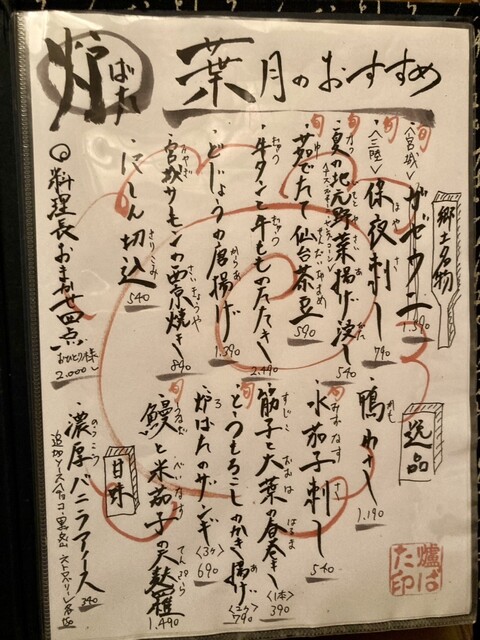 炉ばた
葉月のおすすめ
郷土名物
旬 <宮城> ザゼウニ 1.590
旬 <三陸> 保夜刺し 790
旬 夏の地元野菜揚げ浸し 540
旬 茹でたて仙台茶豆 590
牛タンと牛もものたたき 2.490
どじょうの唐揚げ 1.390
宮城サーモンの西京焼き 890
にしん切込 540
料理長おまかせ四点
おひとり様
2.000
逸品
鴨わさ 1.190
旬 水茄子刺し 540
筋子と大葉の春巻き <1本> 390
旬 とうもろこしのかき揚げ <2ヶ> 790
炉ばたのザンギ <3ヶ> 690
旬 鰻と米茄子の天麩羅 1.490
甘味
濃厚バニラアイス 340
爐ばた印